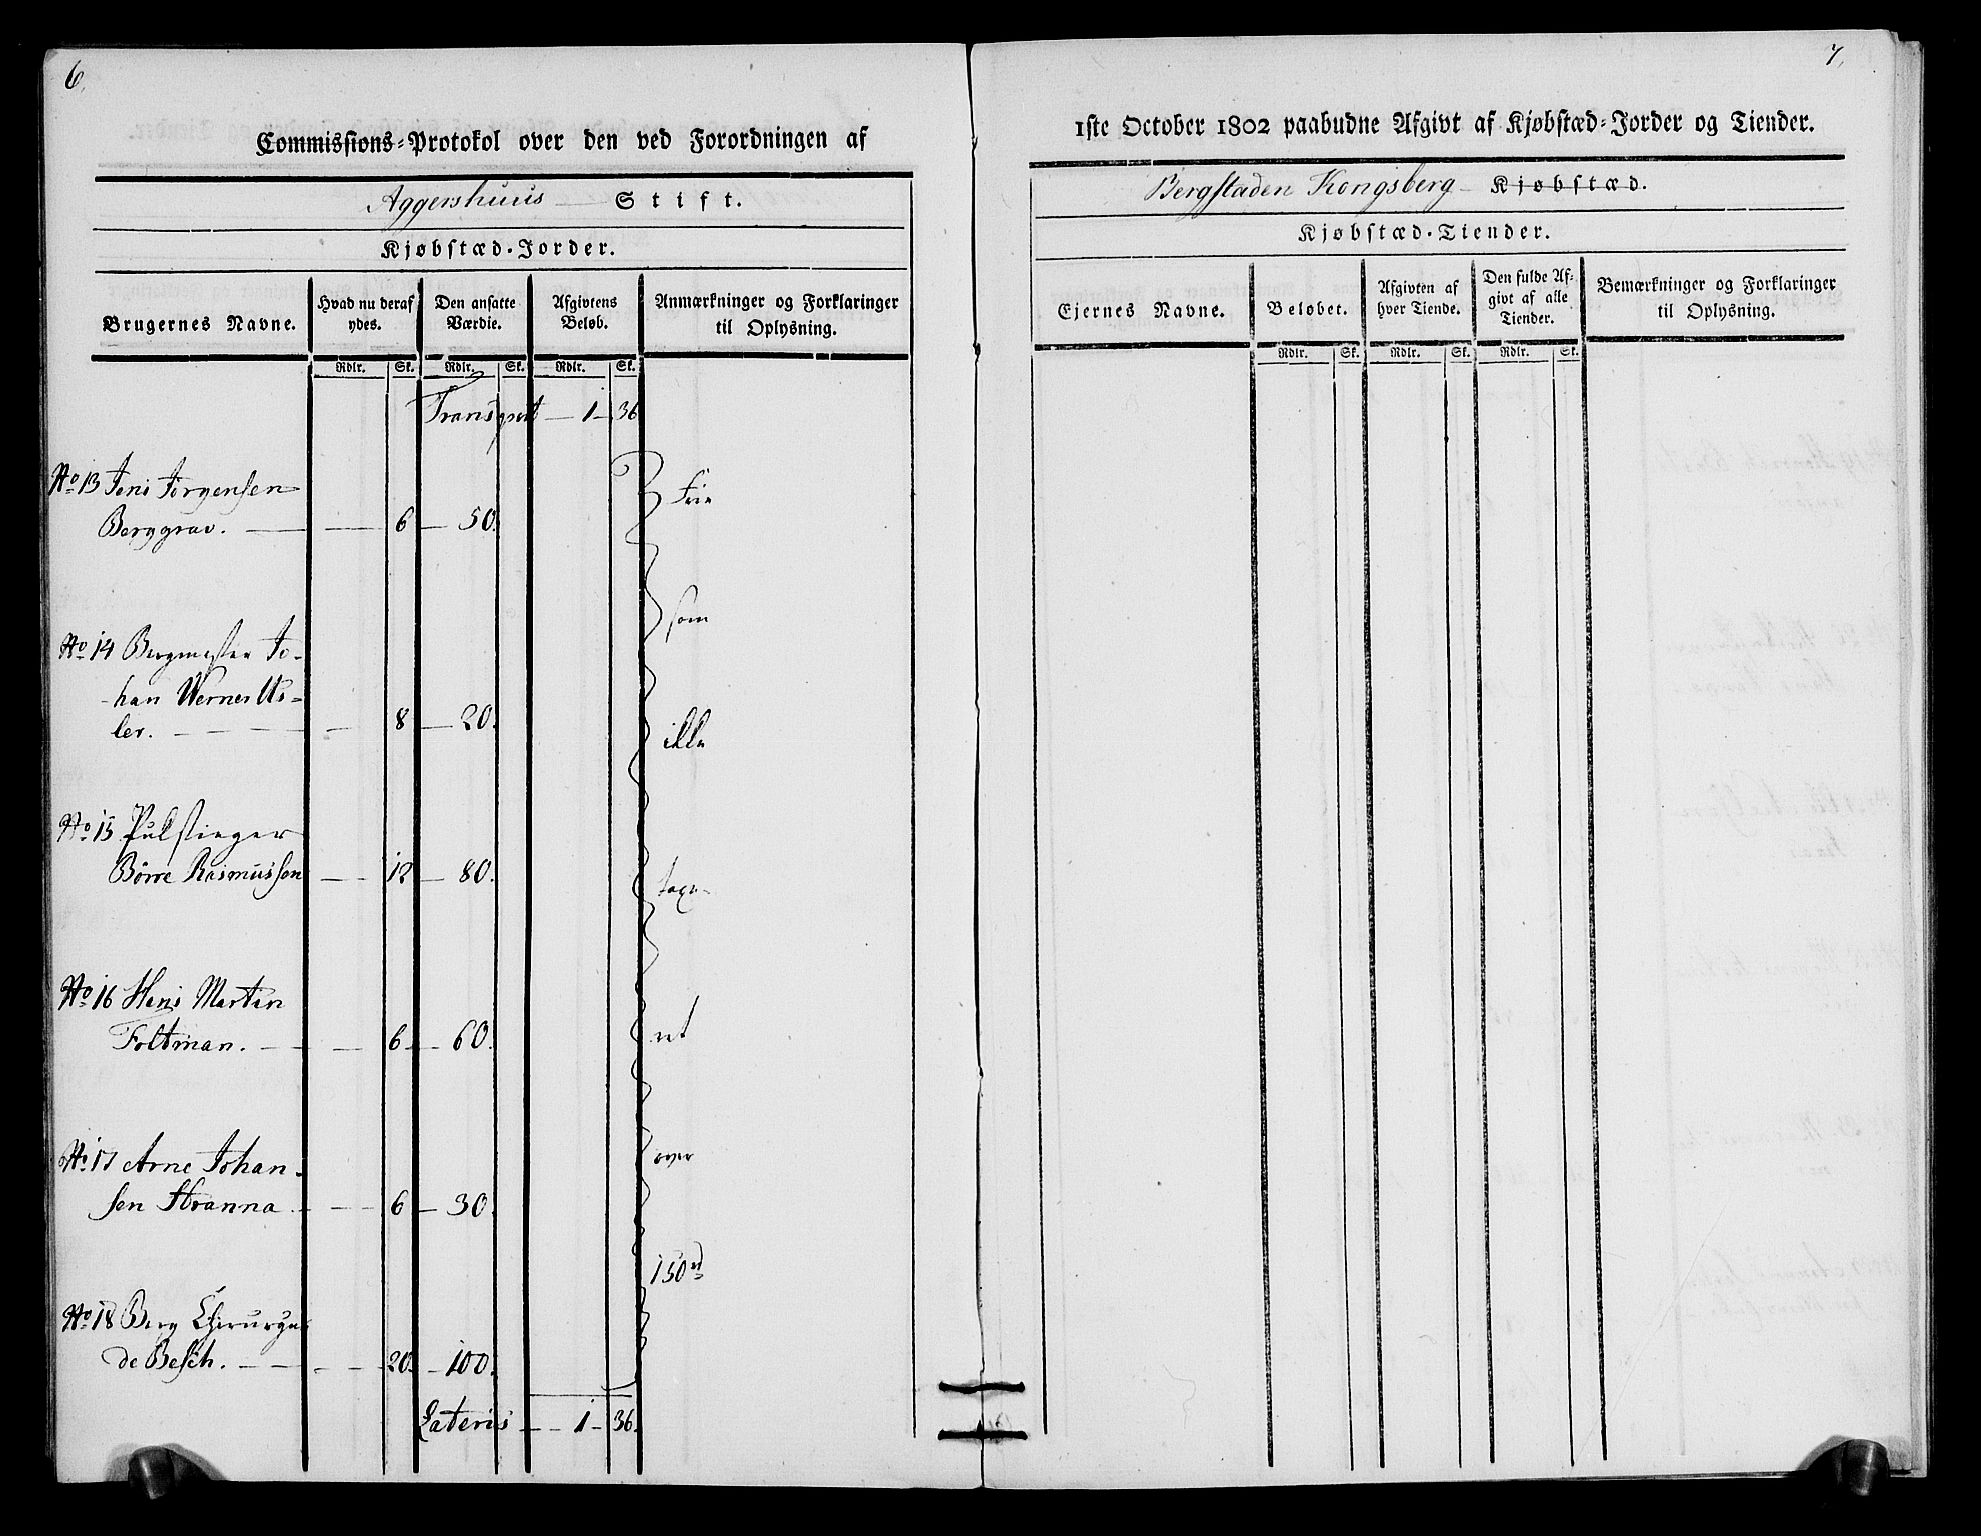 6.
Commissions-Protokol over den ved Forordningen af
Aggershuus Stift.
Kjøbstæd-Jorder.
Brugernes Navne.
Hvad nu deraf ydes.
Den ansatte Værdie.
Afgivtens Beløb.
Anmærkninger og Forklaringer til Oplysning.
Rdlr. Sk. Rdlr. Sk. Rdlr. Sk.
Transport — 1 — 36
No 13 Jens Jørgensen
Berggrav. — 6 — 50.
No 14 Bergmester Jo-
han Werner Us-
ler. — 8 — 20.
No 15 Pulstieger
Børre Rasmussen — 12 — 80.
No 16 Hans Morten
Foltman. — 6 — 60.
No 17 Arne Johan-
sen Stranna — 6 — 30.
No 18 Berg Chirurgus
de Besch. — 20. — 100.
Frie
som
ikke
taxe-
ret
over
150 rd
Lateris — 1 — 36.
7.
1ste October 1802 paabudne Afgivt af Kjøbstæd-Jorder og Tiender.
Bergstaden Kongsberg Kjøbstæd.
Kjøbstæd-Tiender.
Ejernes Navne.
Beløbet.
Afgivten af hver Tiende.
Den fulde Af-
givt af alle
Tiender.
Bemærkninger og Forklaringer til Oplysning.
Rdlr. Sk. Rdlr. Sk. Rdlr. Sk.